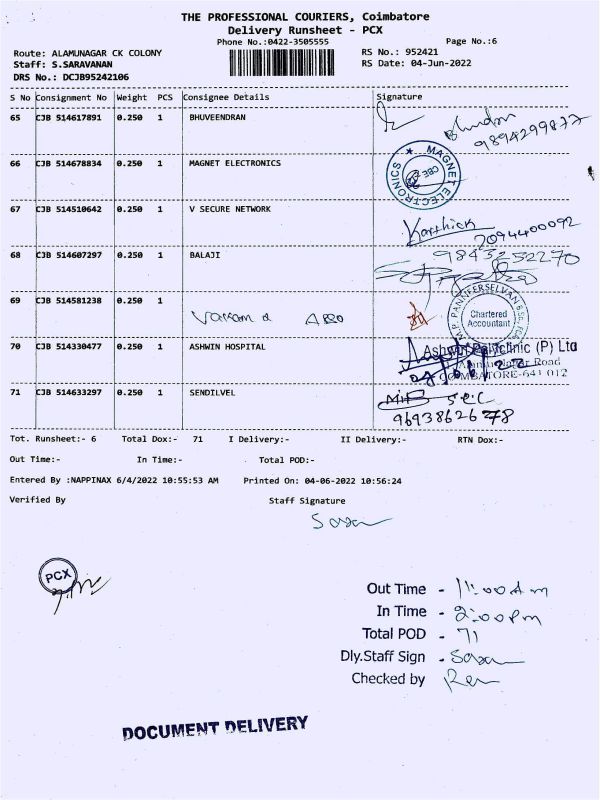 THE PROFESSIONAL COURIERS, Coimbatore
Delivery Runsheet - PCX
Phone No.:0422-3505555
Page No.:6
Route: ALAMUNAGAR CK COLONY
RS No.: 952421
Staff: S.SARAVANAN
RS Date: 04-Jun-2022
DRS No.: DCJB95242106
S No Consignment No Weight PCS Consignee Details Signature
65 CJB 514617891 0.250 1 BHUVEENDRAN
9894299877
66 CJB 514678834 0.250 1 MAGNET ELECTRONICS
MAGNET ELECTRONICS CBE
67 CJB 514510642 0.250 1 V SECURE NETWORK
Karthick
7094400092
68 CJB 514607297 0.250 1 BALAJI
9843252270
69 CJB 514581238 0.250 1
P. PANNEERSELVAN
Chartered
Accountant
70 CJB 514330477 0.250 1 ASHWIN HOSPITAL
Ashwin Polyclinic (P) Ltd
Road
COIMBATORE-641 012
71 CJB 514633297 0.250 1 SENDILVEL
9693862678
Tot. Runsheet:- 6 Total Dox:- 71 I Delivery:- II Delivery:- RTN Dox:-
Out Time:- In Time:- Total POD:-
Entered By :NAPPINAX 6/4/2022 10:55:53 AM Printed On: 04-06-2022 10:56:24
Verified By Staff Signature
PCX
Out Time - 11:00 Am
In Time - 2:00 Pm
Total POD - 71
Dly.Staff Sign -
Checked by
DOCUMENT DELIVERY